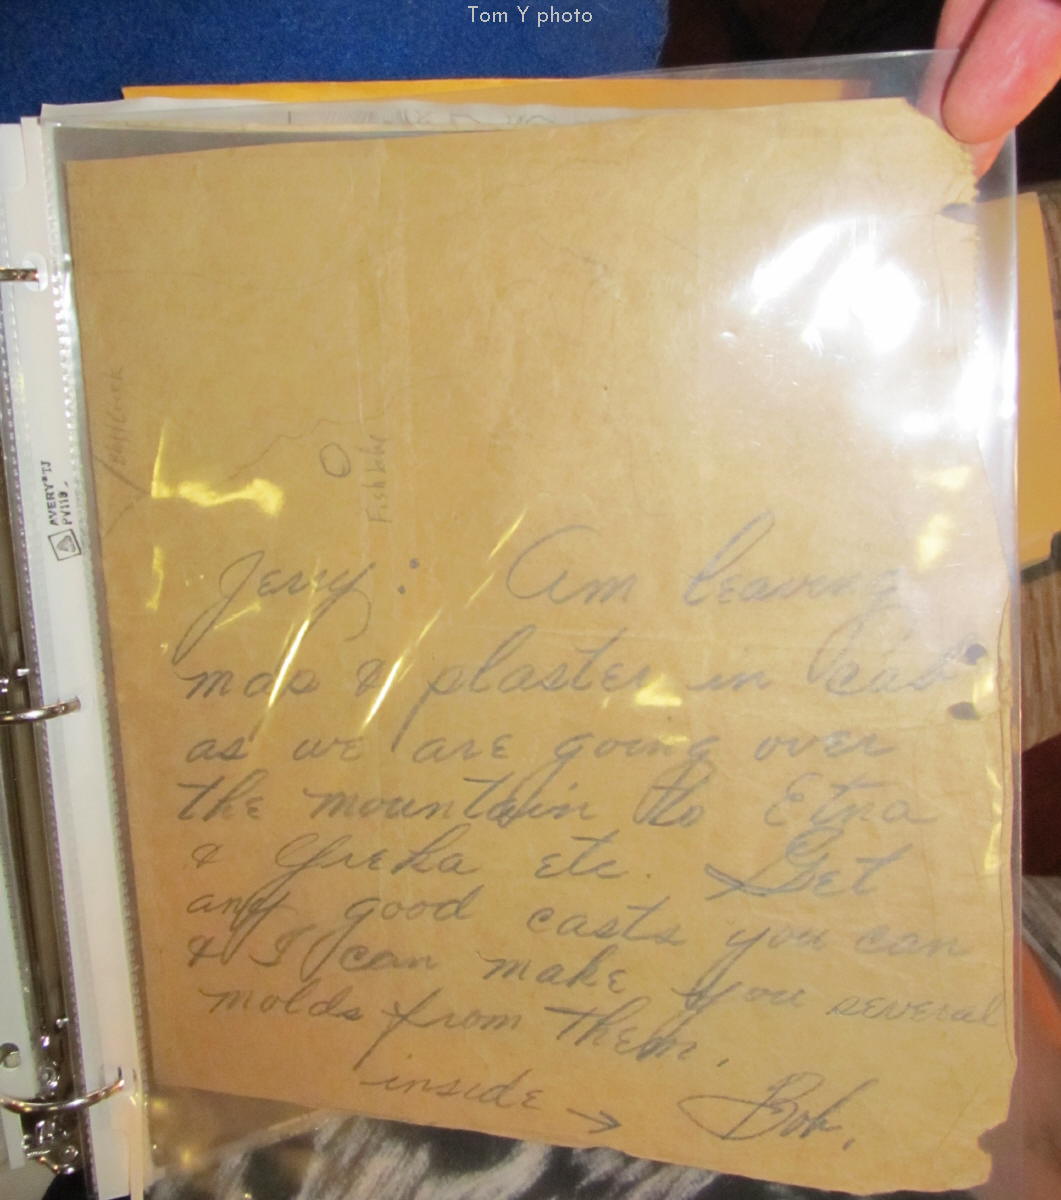 Tom Y photo
AVERY® TJ
PV119
Fish Lake
Jerry: Am leaving
map & plaster in cab
as we are going over
the mountain to Etna
& Yreka etc. Get
any good casts you can
& I can make you several
molds from them.
inside → Bob.